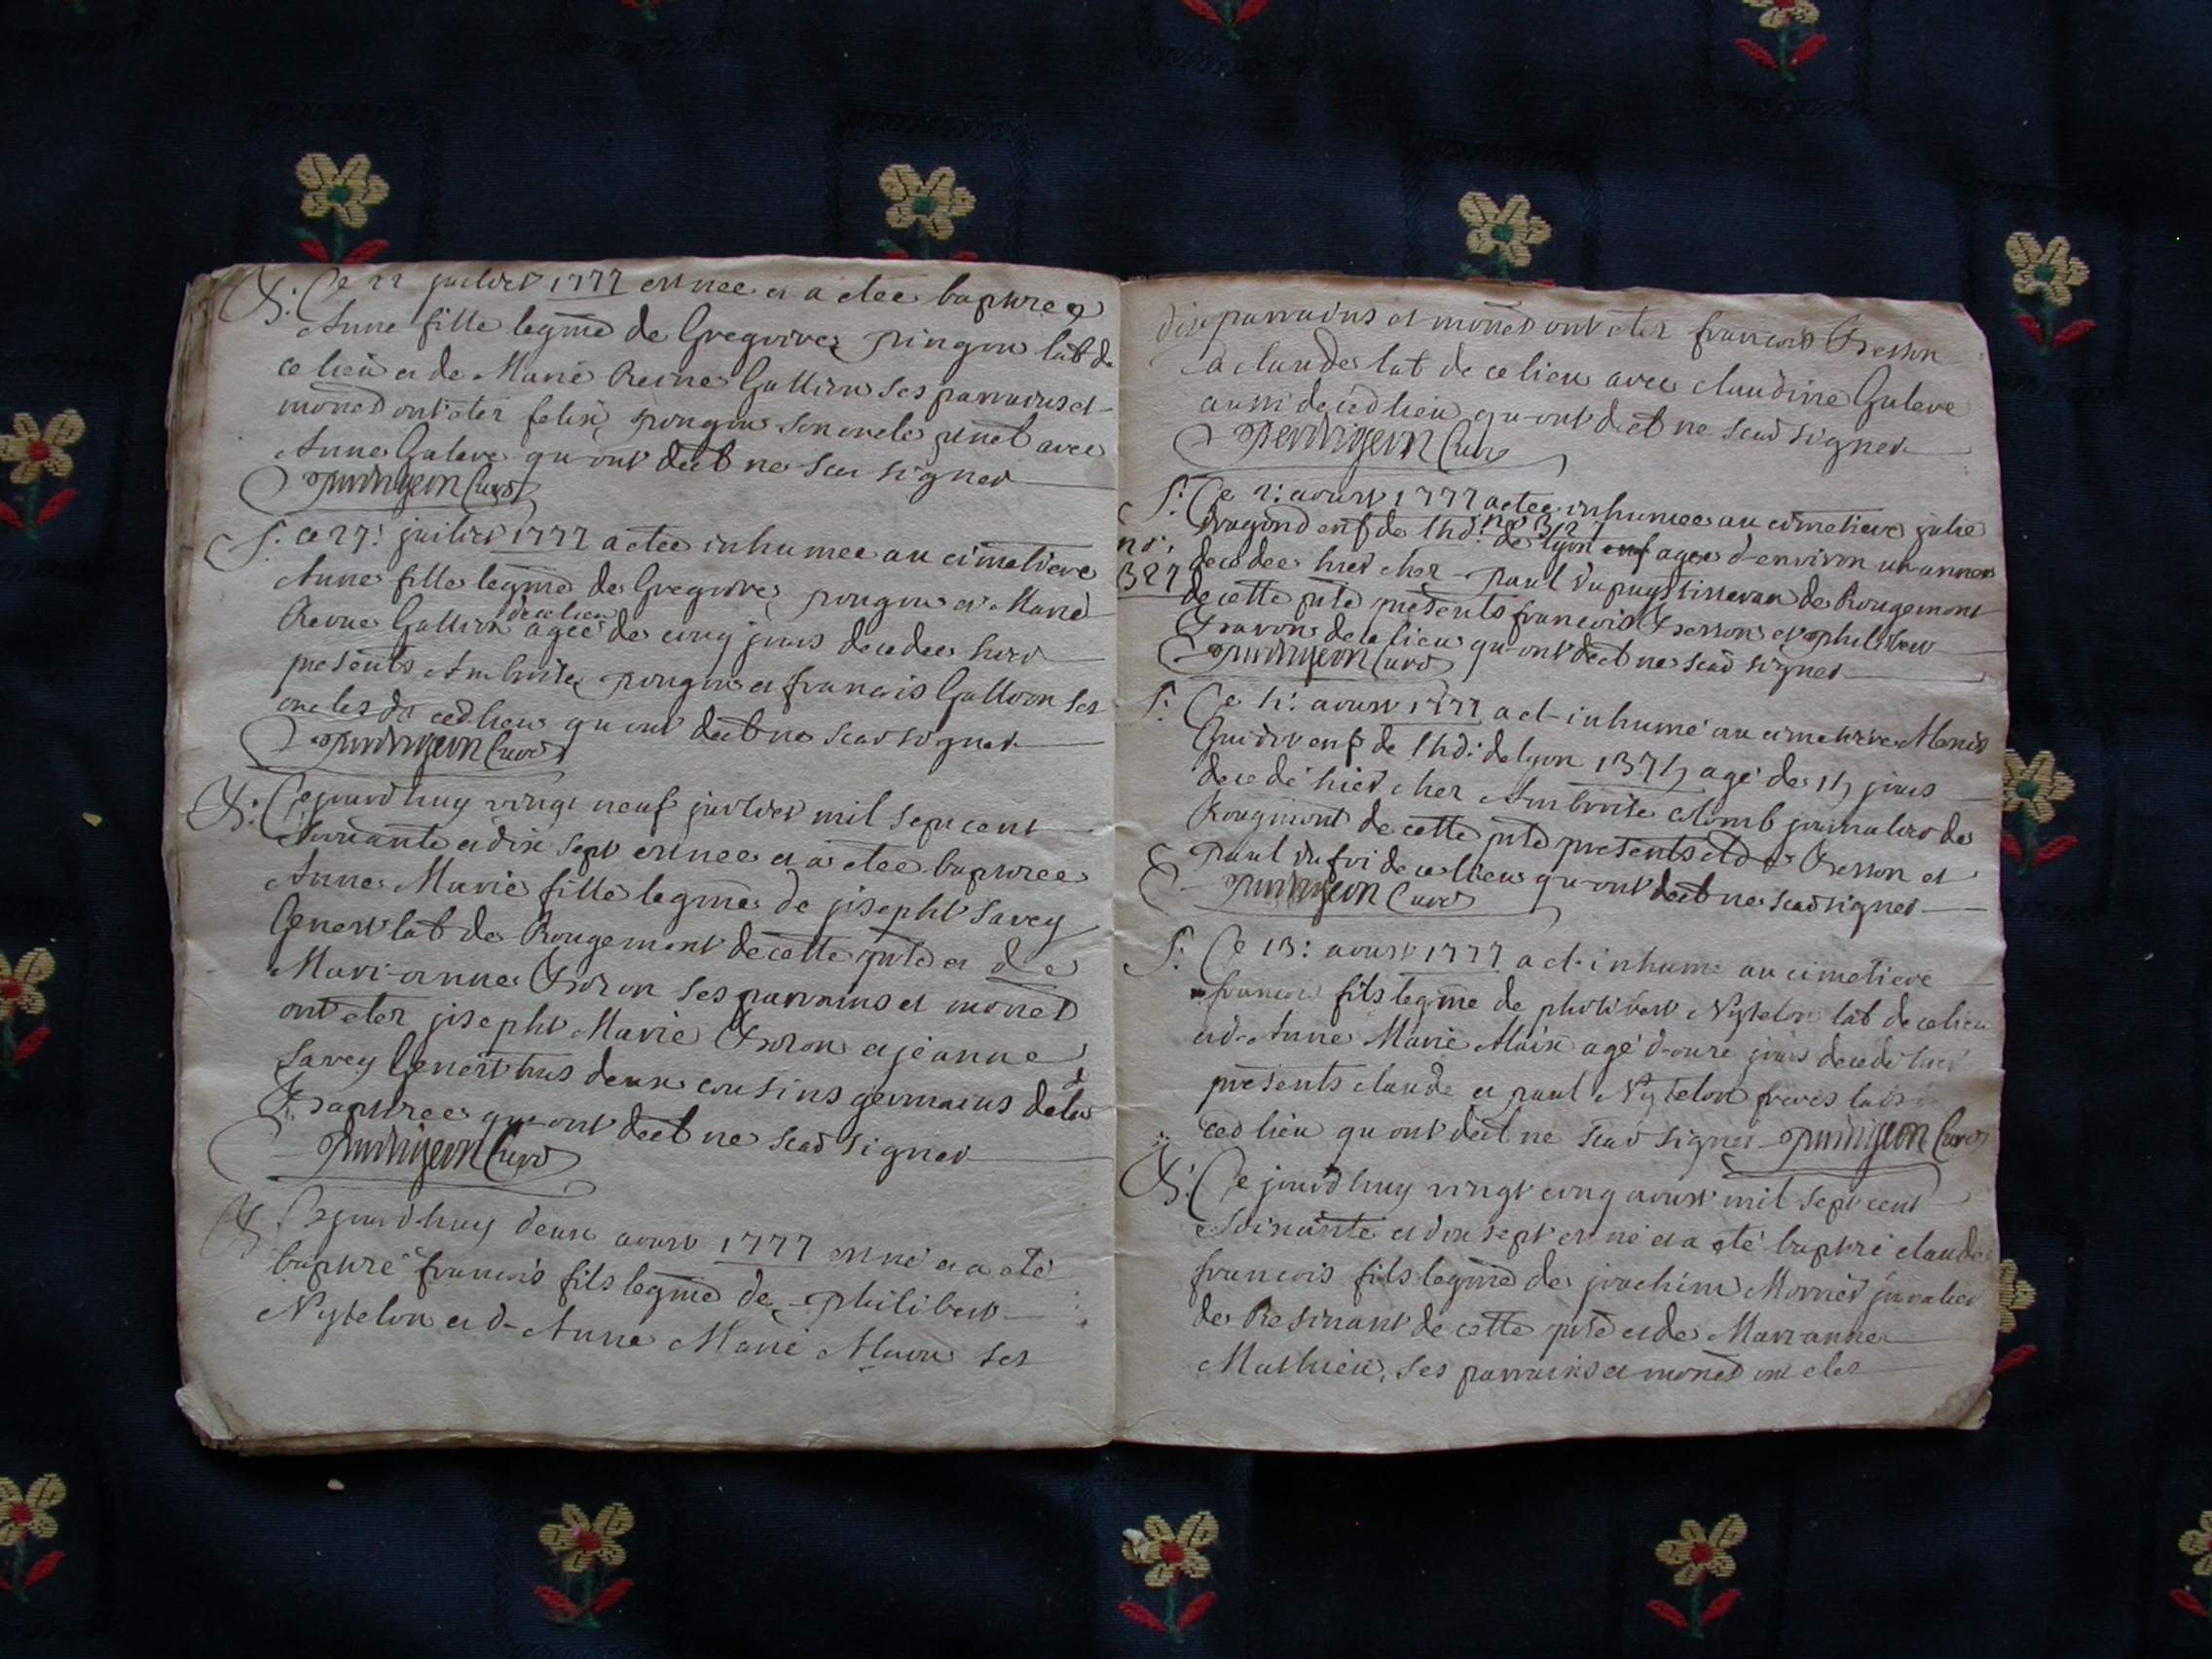 B: Ce 22 juillet 1777 est nee et a etee baptisee
Anne fille legme de Gregoire pingon lab de
ce lieu et de Marie Reine Gallion ses parrains et
mones ont eter felix pongon son oncle pnel avec
Anne Galeve qu-ont deet ne scu signer
Perdrigeon Curé
S: ce 27: juillet 1777 a etee inhumee au cimetiere
Anne fille legme de Gregoire pongon et Marie
Reine Gallion de ce lieu agee de cinq jours decedee hier
presents Ambroise pongon et francois Gallion ses
oncles de ced lieu qu ont deet ne scav signer
Perdrigeon Curé
B: Cejourdhuy vingt neuf juillet mil sept cent
soixante et dix sept est nee et a etee baptisee
Anne Marie fille legme de joseph Savey
Genest lab de Rougemont de cette psse et de
Mari-anne Boron ses parrains et mones
ont eter joseph Marie Boron et jeanne
Savey Genest tous deux cousins germains de la
Baptisee qu-ont deet ne scav signer
Perdrigeon Curé
B Cejourdhuy deux aoust 1777 est né et a eté
baptisé francois fils legme de philibert
Nytelon et d-Anne Marie ses
parrains et mones ont eter francois Besson
a claude lab de ce lieu avec claudine Galeve
aussi de ced lieu qu-ont deet ne scav signer
Perdrigeon Curé
S: Ce 2: aoust 1777 a etee inhumee au cimetiere julie
enf de lhd: de lyon agee d-environ un annee
no: 327 decedee hier chez paul Dupuy tisseran de Rougemont
de cette psse presents francois Besson et philibert
Bavon de ce lieu qu-ont deet ne scav signer
Perdrigeon Curé
S: Ce aoust 1777 a et inhumé au cimetiere
enf de lhd: de lyon agé de jours
decedé hier chez Ambroise colomb journalier de
Rougmont de cette psse presents Besson et
paul de ce lieu qu-ont deet ne scav signer
Perdrigeon Curé
S: Ce 13: aoust 1777 a et inhumé au cimetiere
francois fils legme de philibert Nytelon lab de ce lieu
et d-Anne Marie agé d-onze jours decedé hier
presents claude et paul Nytelon freres
ced lieu qu ont deet ne scav signer Perdrigeon Curé
B: Ce jourdhuy vingt cinq aoust mil sept cent
soixante et dix sept est né et a eté baptisé claude
francois fils legme de joachim Mornet
de Resinant de cette psse et de Marianne
Mathieu, ses parrains et mones ont eter